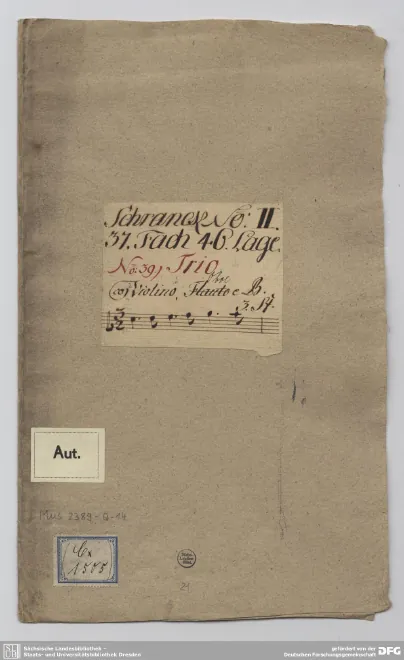 Schranck No: II.
37. Fach 46. Lage.
No: 39) Trio
Violino, Flauto e B.
3. St.
Aut.
Mus 2389-Q-14
Cx
1505
21
Sächsische Landesbibliothek -
Staats- und Universitätsbibliothek Dresden
gefördert von der
Deutschen Forschungsgemeinschaft
DFG